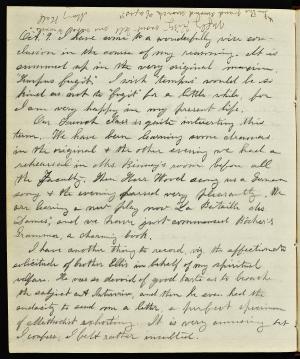 Oct. I have come to a wonderfully wise con-
clusion in the course of my reasoning. It is
summed up in the very original maxim,
"Tempus fugit." I wish tempus would be so
kind as not to "fugit" for a little while, for
I am very happy in my present life.
Our French Class is quite interesting this
term. We have been learning some
in the original & the other evening we had a
rehearsal in Miss room before all
the Faculty. Miss sang us a German
song & the evening passed very pleasantly. We
are learning a new play now "La Bataille des
Dames", and we have just commenced Bôcher's
Grammar a charming book.
I have another thing to record, viz the affectionate
solicitude of brother Ellis in behalf of my spiritual
welfare. He was so devoid of good taste as to broach
the subject at Interview, and then he even had the
audacity to send me a letter, a perfect specimen
of Methodist exhorting. It is very amusing but
I confess, I felt rather insulted.